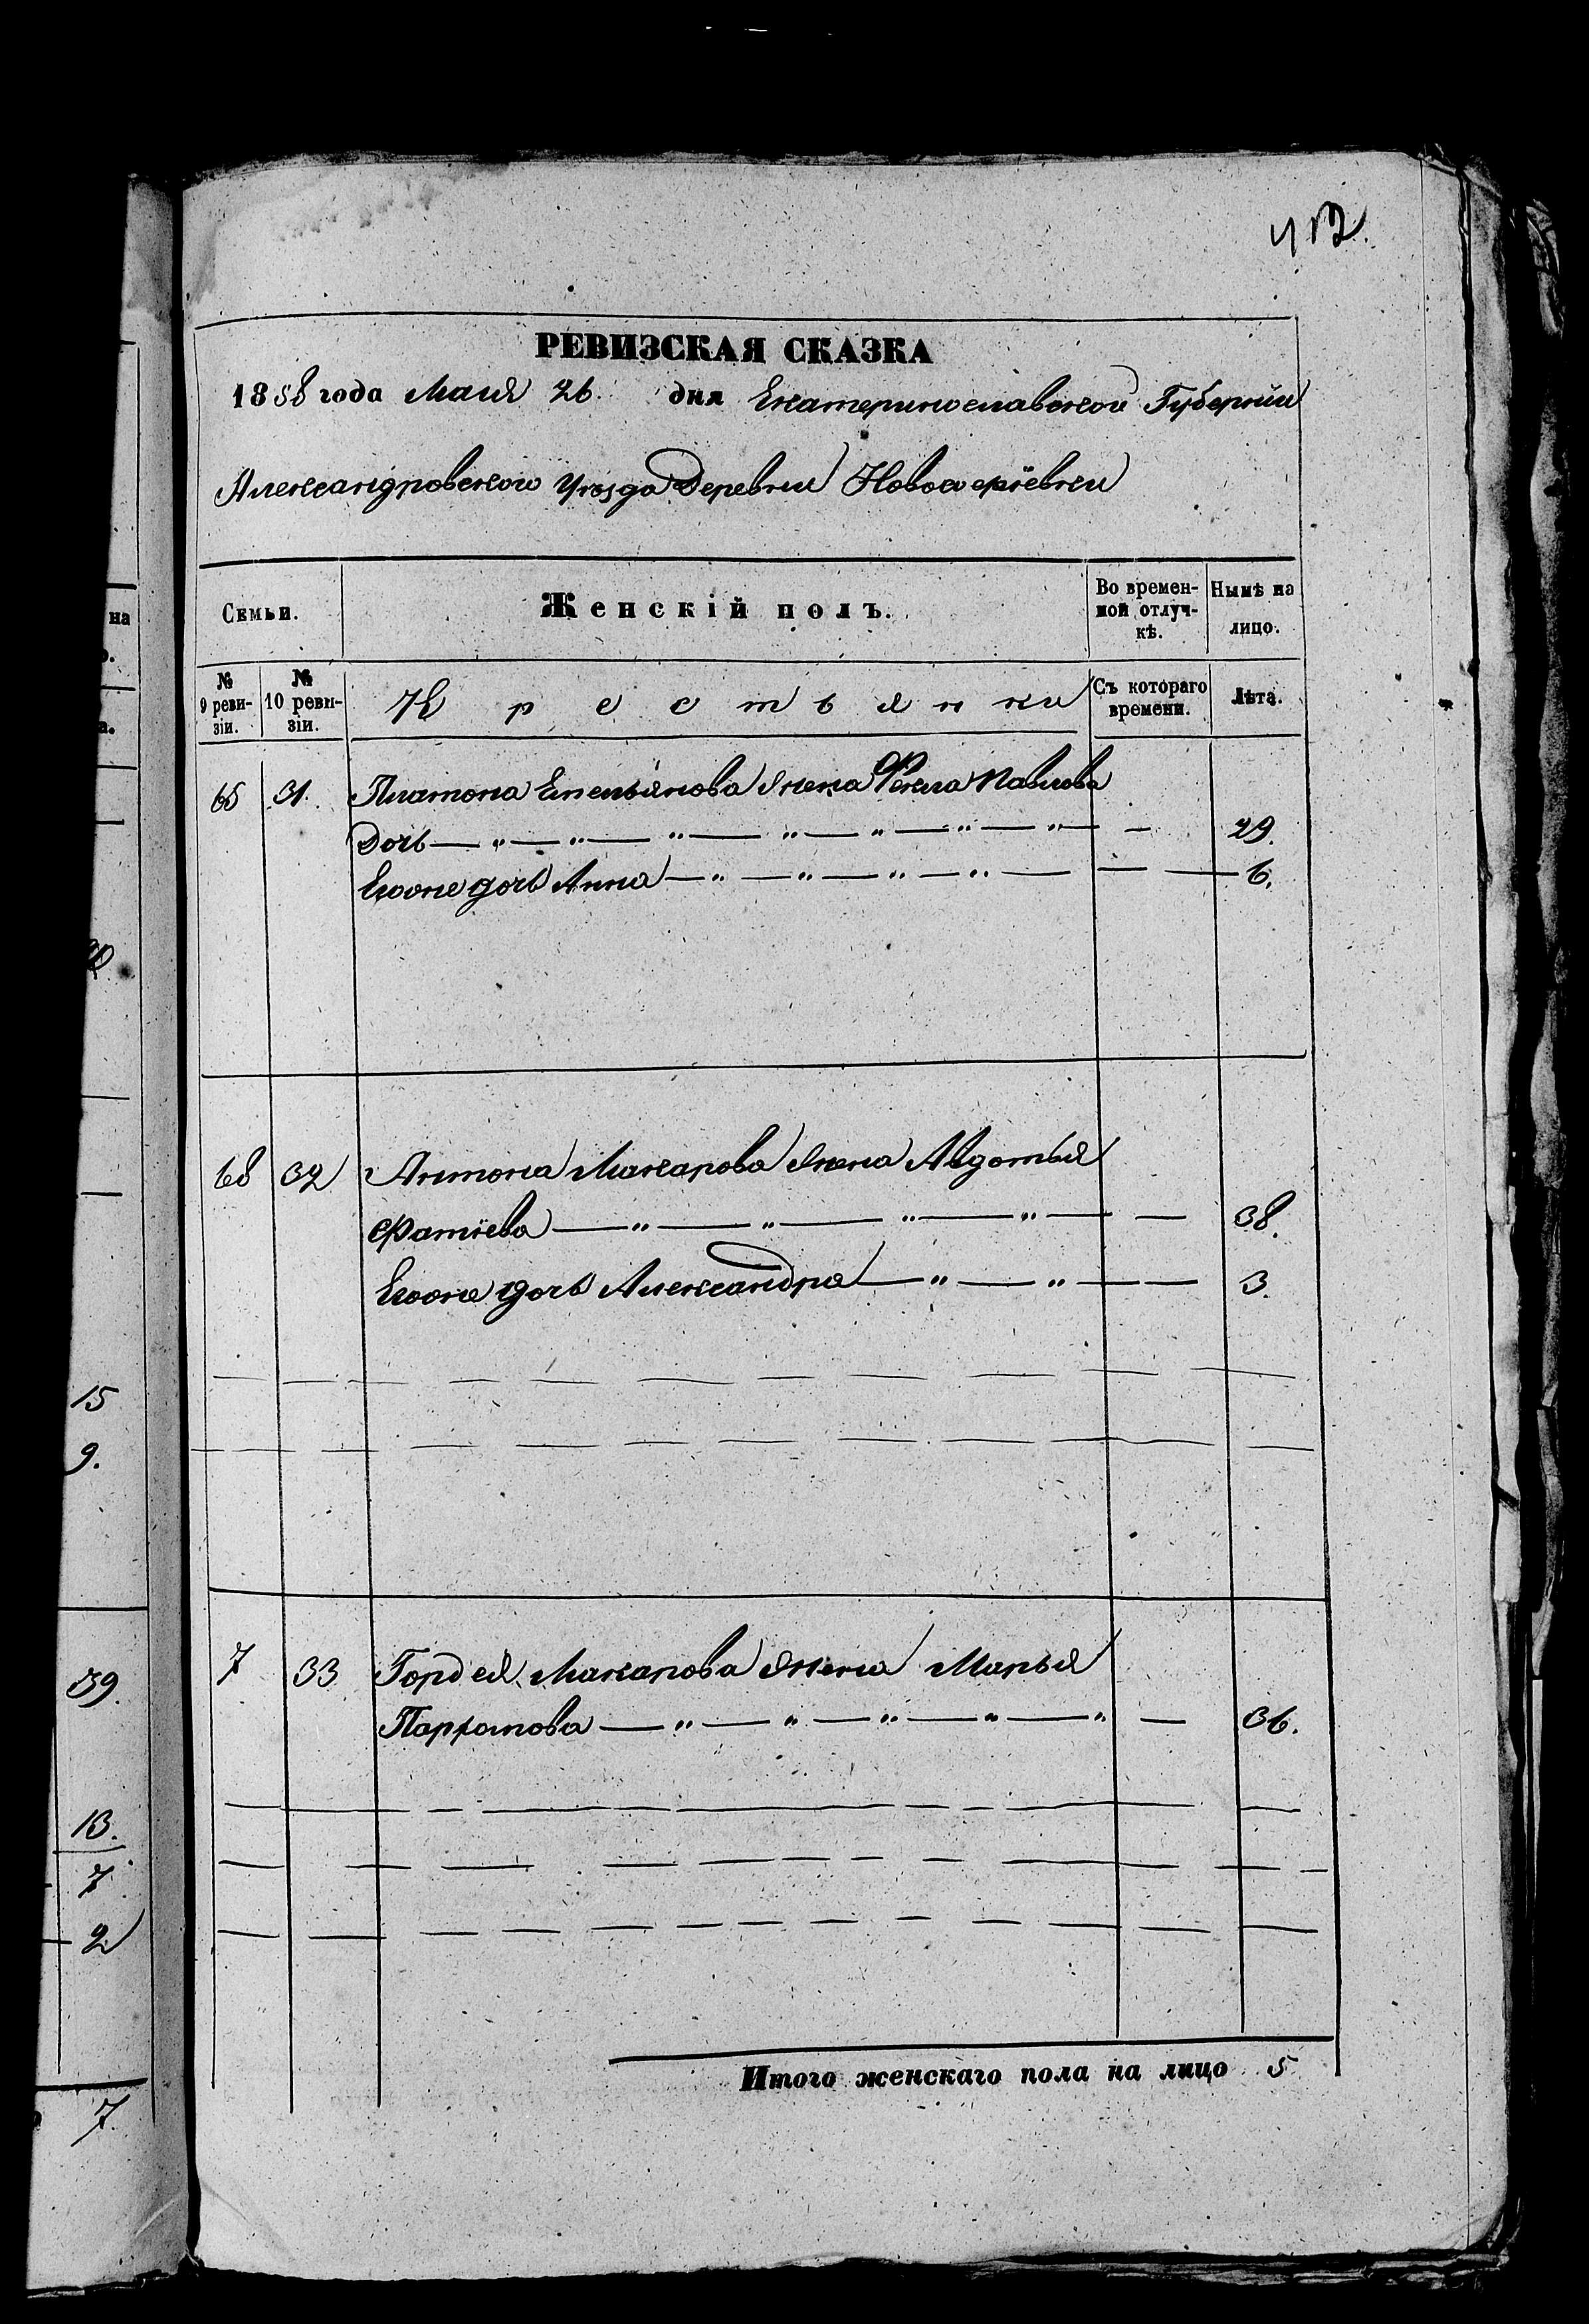 412.
РЕВИЗСКАЯ СКАЗКА
1858 года Маия 26. дня Екатеринославской Губернии
Александровского Уѣзда Деревни Новосергіевки
Семьи.
Женскій полъ.
Во времен-
ной отлуч-
кѣ.
Нынѣ на
лицо.
№
9 реви-
зіи.
№
10 реви-
зіи.
Крестьянки
Съ котораго
времени.
Лѣта.
65 31. Платона Емельянова жена Фекла Павлова
дочь — " — " — " — " — " — " — " — — 29.
Егоже дочь Анна — " — " — " — " — — — 6.
68 32 Антона Макарова жена Авдотья
Фатіева — " — " — " — " — — 38.
Егоже дочь Александра — " — " — — 3.
7 33 Гордея Макарова жена Марья
Парфомова — " — " — " — " — " — 36.
Итого женскаго пола на лицо 5
на
15
9.
39.
13.
7
2
7.